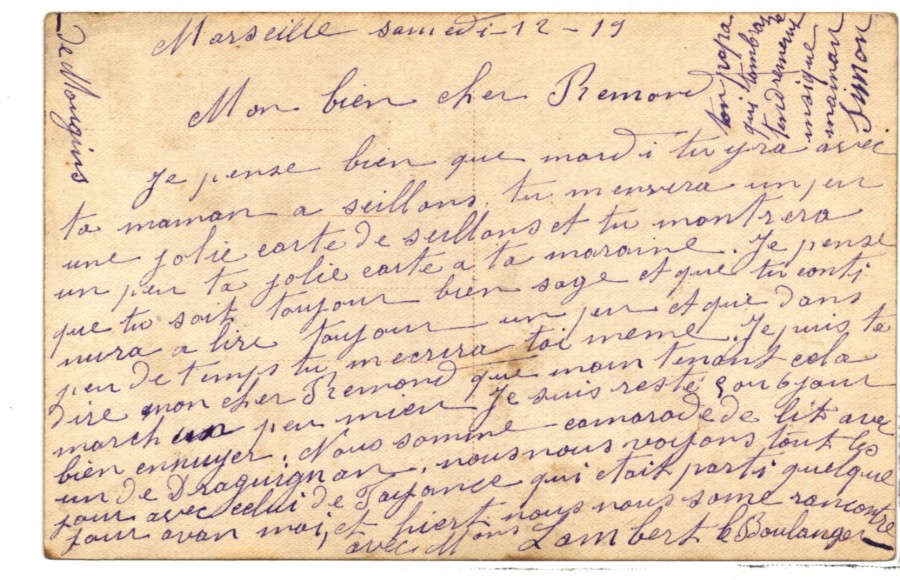 Marseille samedi-12-19
Mon bien cher Remond
Je pense bien que mardi tu yra avec
ta maman a seillans, tu menvera un peu
une jolie carte de seillans et tu montrera
un peu ta jolie carte a ta maraine. Je pense
que tu soit toujour bien sage et que tu conti
nura a lire toujour un peu et que dans
peu de temps tu mecrira toi meme. Je puis te
dire mon cher Remond que main tenant cela
march un peu mieu Je suis resté 5 ou 6 jour
bien ennuyer. Nous somme camarade de lit avec
un de Draguignan, nous nous voyons tout les
jour avec celui de Fayance qui était parti quelque
jour avan moi, et hiert nous nous some rencontre
avec Mons Lambert le Boulanger
De Mougins
ton papa
qui tambras
tendrement
insique
maman
Simon